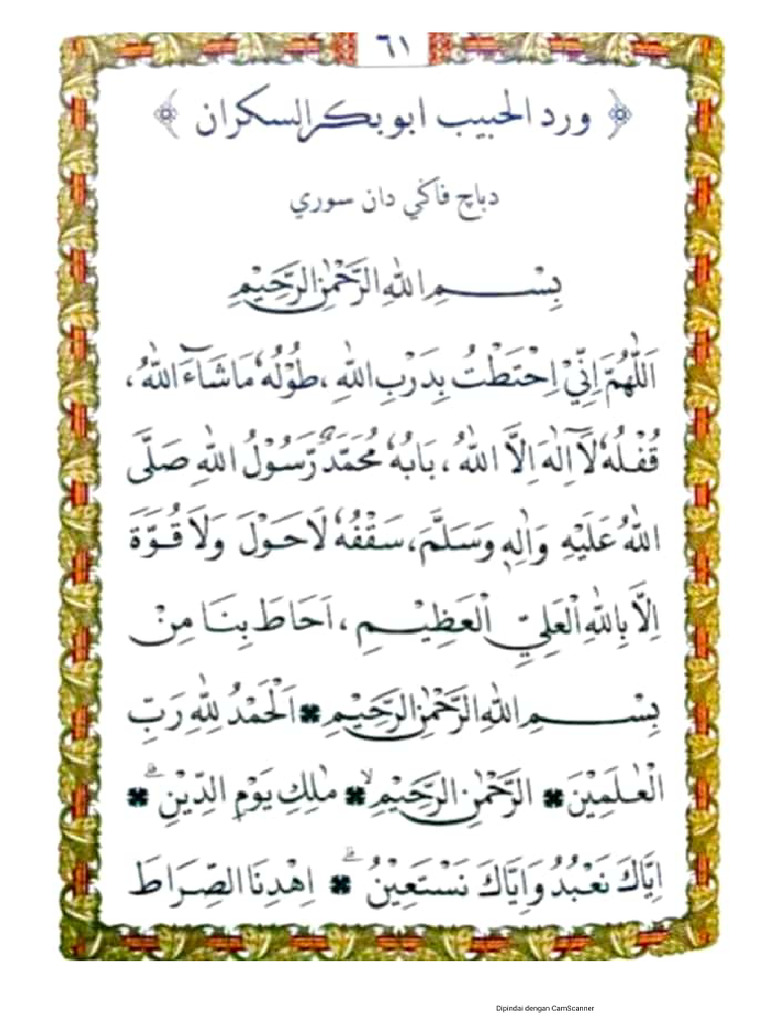 ٦١
ورد الحبيب ابو بكر السكران
دباچ فاݢي دان سوري
بِسْــــمِ اللهِ الرَّحْمٰنِ الرَّحِيْمِ
اَللّٰهُمَّ اِنِّيْ اِحْتَطْتُ بِدَرْبِ اللهِ ، طُوْلُهُ مَاشَآءَ اللهُ ،
قُفْلُهُ لَآاِلٰهَ اِلَّا اللهُ ، بَابُهُ مُحَمَّدٌ رَّسُوْلُ اللهِ صَلَّى
اللهُ عَلَيْهِ وَاٰلِهٖ وَسَلَّمَ، سَقْفُهُ لَاحَوْلَ وَلَا قُـوَّةَ
اِلَّا بِاللهِ الْعَلِيِّ الْعَظِيْـــمِ ، اَحَاطَ بِنَا مِنْ
بِسْــــمِ اللهِ الرَّحْمٰنِ الرَّحِيْمِ ۞ اَلْحَمْدُ لِلّٰهِ رَبِّ
الْعٰـلَمِيْنَ ۞ الرَّحْمٰنِ الرَّحِيْمِ ۙ ۞ مٰلِكِ يَوْمِ الدِّيْنِ ۗ ۞
اِيَّاكَ نَعْبُدُ وَاِيَّاكَ نَسْتَعِيْنُ ۗ ۞ اِهْدِنَا الصِّرَاطَ
Dipindai dengan CamScanner